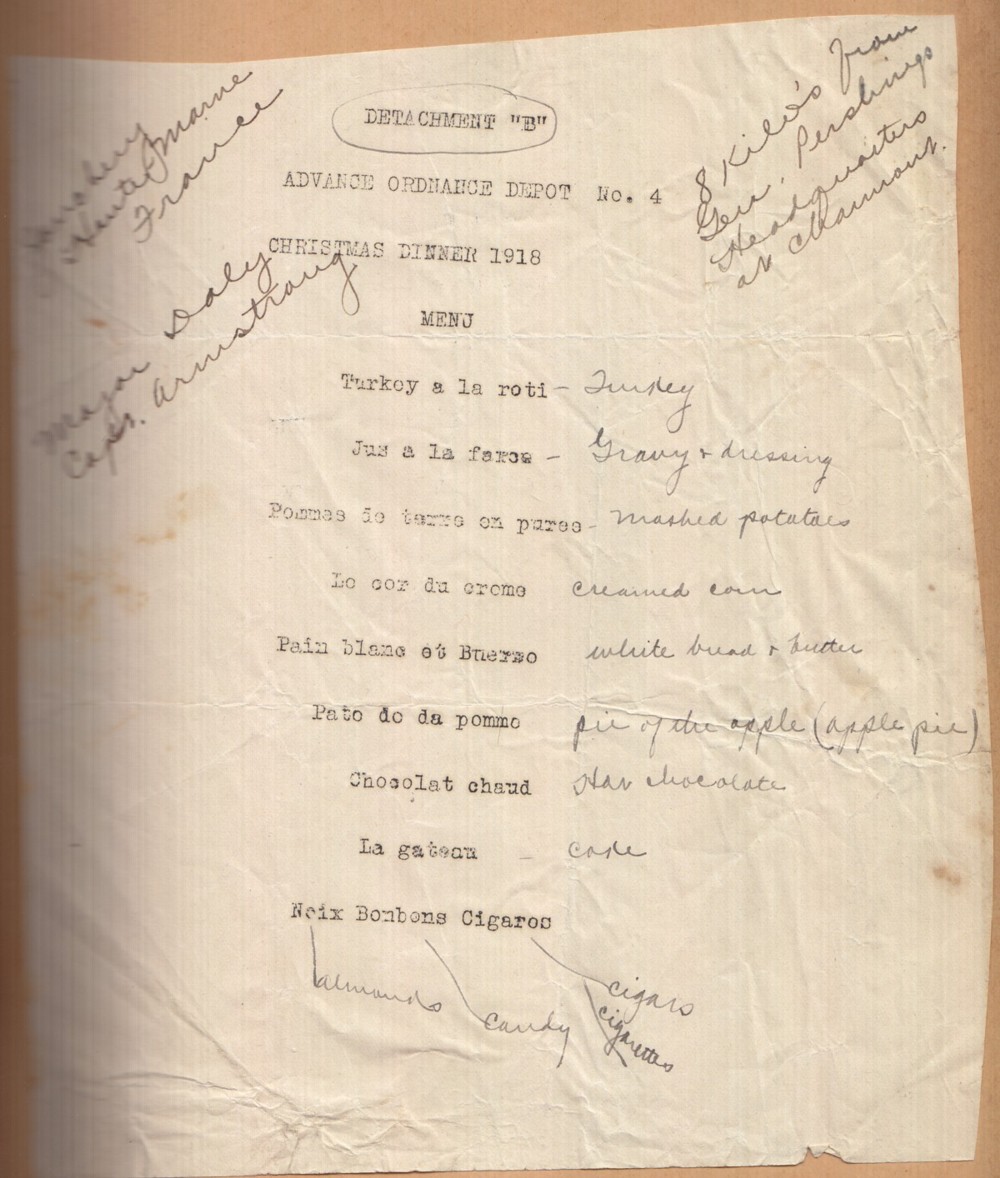 Haute Marne
France
8 Kilo's from
Gen. Pershings
Headquarters
at Chaumont.
DETACHMENT "B"
ADVANCE ORDNANCE DEPOT No. 4
CHRISTMAS DINNER 1918
Major Daly
Capt. Armstrong
MENU
Turkey a la roti - Turkey
Jus a la farce - Gravy + dressing
Pommes de terre en puree - Mashed potatoes
Le cor du creme creamed corn
Pain blanc et white bread + butter
Pate de da pomme pie of the apple (apple pie)
Chocolat chaud Hot chocolate
La gateau - cake
Noix Bonbons Cigaros
almonds
candy
cigars
cigarettes